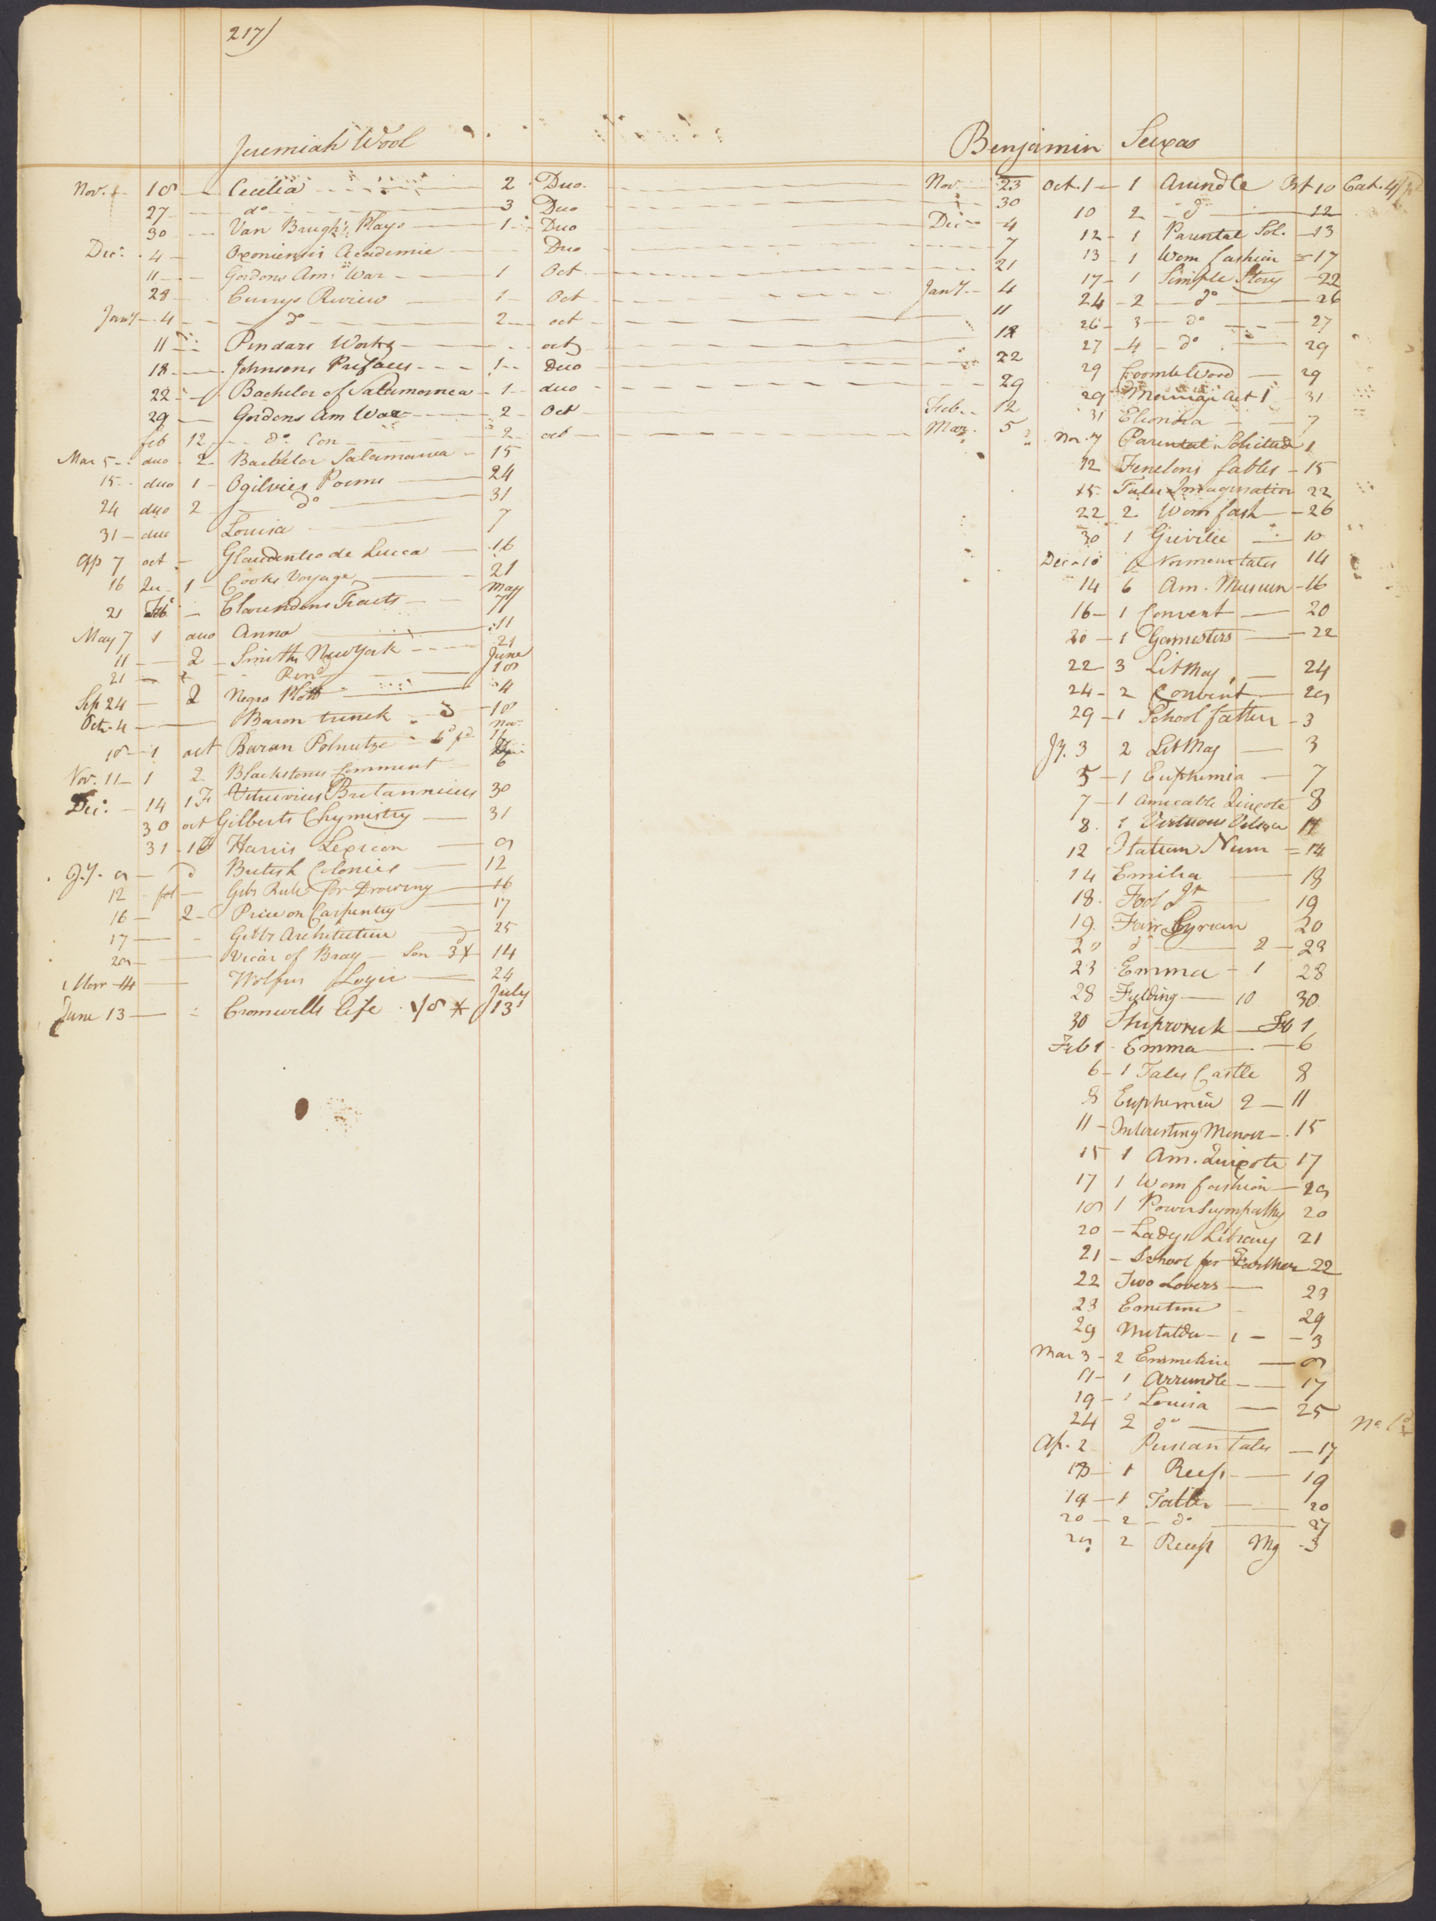 217)
Jeremiah Wool
Nov. 18 Cecilia 2 Duo Nov 23
27 do 3 Duo 30
30 Van Brugh's Plays 1 Duo Dec 4
Dec. 4 Oxoniensis Academia Duo 7
11 Gordons Am. War 1 Oct 21
28 Currys Review 1 Oct Jany 4
Jany 4 do 2 oct 11
11 Pindars Works oct 18
18 Johnsons Prefaces 1 duo 22
22 Bachelor of Salamanca 1 duo 29
29 Gordons Am War 2 Oct Feb. 12
feb 12 do Con 2 oct Mar. 5
Mar 5 duo 2 Bachelor Salamanca 15
15 duo 1 Ogilvies Poems 24
24 duo 2 do 31
31 duo Louisa 7
Ap 7 oct Glaudentio de Lucca 16
16 1 Cooks Voyage 21
21 Clarendons Tracts May 7
May 7 1 duo Anna 11
11 2 Smiths New York 21
21 June 18
Sep 24 2 Negro Plott 4
Oct. 4 Baron trenck 18
18 1 oct Baran Polnitze Nov. 11
Nov. 11 1 2 Blackstones Comment 6
Dec. 14 1 F Vitruvius Britannicus 30
30 oct Gilberts Chymistry 31
31 Harris Lexicon 9
Jy. 9 British Colonies 12
12 fol Gibs Rules for Drawing 16
16 2 Price on Carpentry 17
17 Gibbs Architecture 25
29 Vicar of Bray 14
Mar 4 Wolfius Logic 24
June 13 Cromwells life July 13
Benjamin Seixas
Oct. 1 1 Arundle Oct 10 Cat. 4/
10 2 do 12
12 1 Parental Sol. 13
13 1 Wom fashion 17
17 1 Simple Story 22
24 2 do 26
26 3 do 27
27 4 do 29
29 Coombe Wood 29
29 Marriage act 1 31
31 7
Nov. 7 Parental Solicitude 1
12 Fenelons fables 15
15 Tales Imagination 22
22 2 Wom fash 26
30 1 Greville 10
Dec 10 Norman tales 14
14 6 Am. Museum 16
16 1 Convent 20
20 1 Gamesters 22
22 3 Lit Mag 24
24 2 Convent 29
29 1 School fathers 3
Jy. 3 2 Lit Mag 3
5 1 Euphemia 7
7 1 Amicable Quixote 8
8 1 Virtuous 11
12 Italian Nun 14
14 Emilia 18
18 Fool Qt 19
19 Fair Syrian 20
20 do 2 23
23 Emma 1 28
28 Fielding 10 30
30 Shipwreck Fb 1
Feb 1 Emma 6
6 1 Tales Castle 8
8 Euphemia 2 11
11 Interesting Memoir 15
15 1 Am. Quixote 17
17 1 Wom fashion 29
18 1 Power Sympathy 20
20 Ladys Library 21
21 School for Farther 22
22 Two Lovers 23
23 Emetine 29
29 1 3
Mar 3 2 Emmetine 8
11 1 Arrundle 17
19 1 Louisa 25
24 2 do
Ap. 2 Persian tales 17
18 1 Recess 19
19 1 Tatler 20
20 2 do 27
29 2 Recess My 3